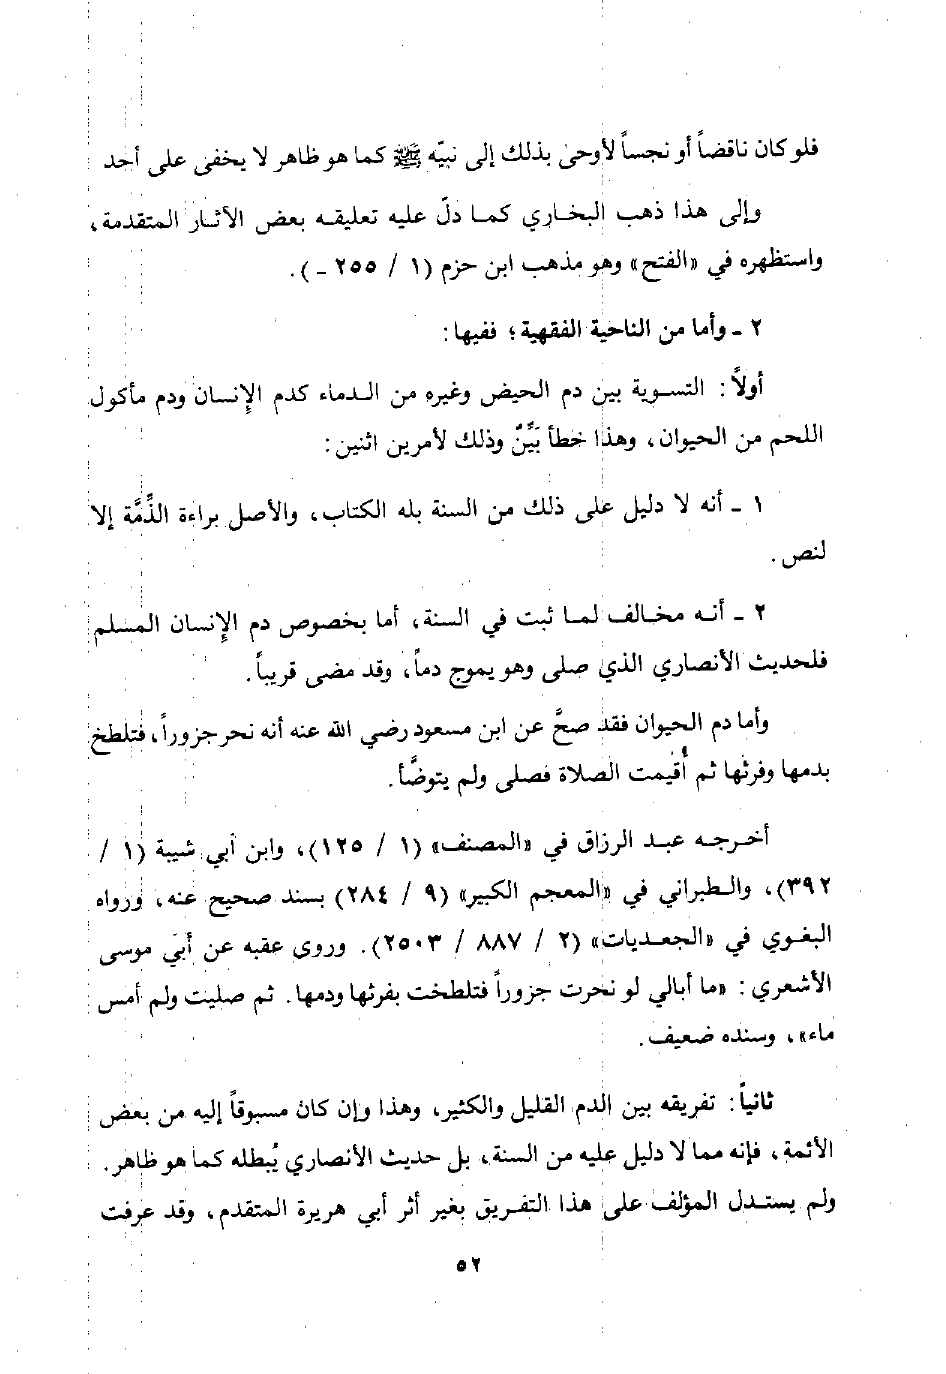 فلو كان ناقضاً أو نجساً لأوحىٰ بذلك إلى نبيّه ﷺ كما هو ظاهر لا يخفى على أحد
وإلى هذا ذهب البخاري كما دلّ عليه تعليقه بعض الآثار المتقدمة،
واستظهره في «الفتح» وهو مذهب ابن حزم (١ / ٢٥٥ -).
٢ - وأما من الناحية الفقهية؛ ففيها:
أولاً: التسوية بين دم الحيض وغيره من الدماء كدم الإنسان ودم مأكول
اللحم من الحيوان، وهذا خطأ بَيِّنٌ وذلك لأمرين اثنين:
١ - أنه لا دليل على ذلك من السنة بله الكتاب، والأصل براءة الذِّمَّة إلا
لنص.
٢ - أنه مخالف لما ثبت في السنة، أما بخصوص دم الإنسان المسلم
فلحديث الأنصاري الذي صلى وهو يموج دماً، وقد مضى قريباً.
وأما دم الحيوان فقد صحَّ عن ابن مسعود رضي الله عنه أنه نحر جزوراً، فتلطخ
بدمها وفرثها ثم أُقيمت الصلاة فصلى ولم يتوضَّأ.
أخرجه عبد الرزاق في «المصنف» (١ / ١٢٥)، وابن أبي شيبة (١ /
٣٩٢)، والطبراني في «المعجم الكبير» (٩ / ٢٨٤) بسند صحيح عنه، ورواه
البغوي في «الجعديات» (٢ / ٨٨٧ / ٢٥٠٣). وروى عقبه عن أبي موسى
الأشعري: «ما أبالي لو نحرت جزوراً فتلطخت بفرثها ودمها. ثم صليت ولم أمس
ماء»، وسنده ضعيف.
ثانياً: تفريقه بين الدم القليل والكثير، وهذا وإن كان مسبوقاً إليه من بعض
الأئمة، فإنه مما لا دليل عليه من السنة، بل حديث الأنصاري يُبطله كما هو ظاهر.
ولم يستدل المؤلف على هذا التفريق بغير أثر أبي هريرة المتقدم، وقد عرفت
٥٢